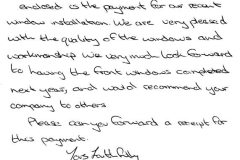 enclosed is the payment for our recent
window installation. We are very pleased
with the quality of the windows and
workmanship. We very much look forward
to having the front windows completed
next year, and would recommend your
company to others.
Please can you forward a receipt for
this payment.
Yours faithfully